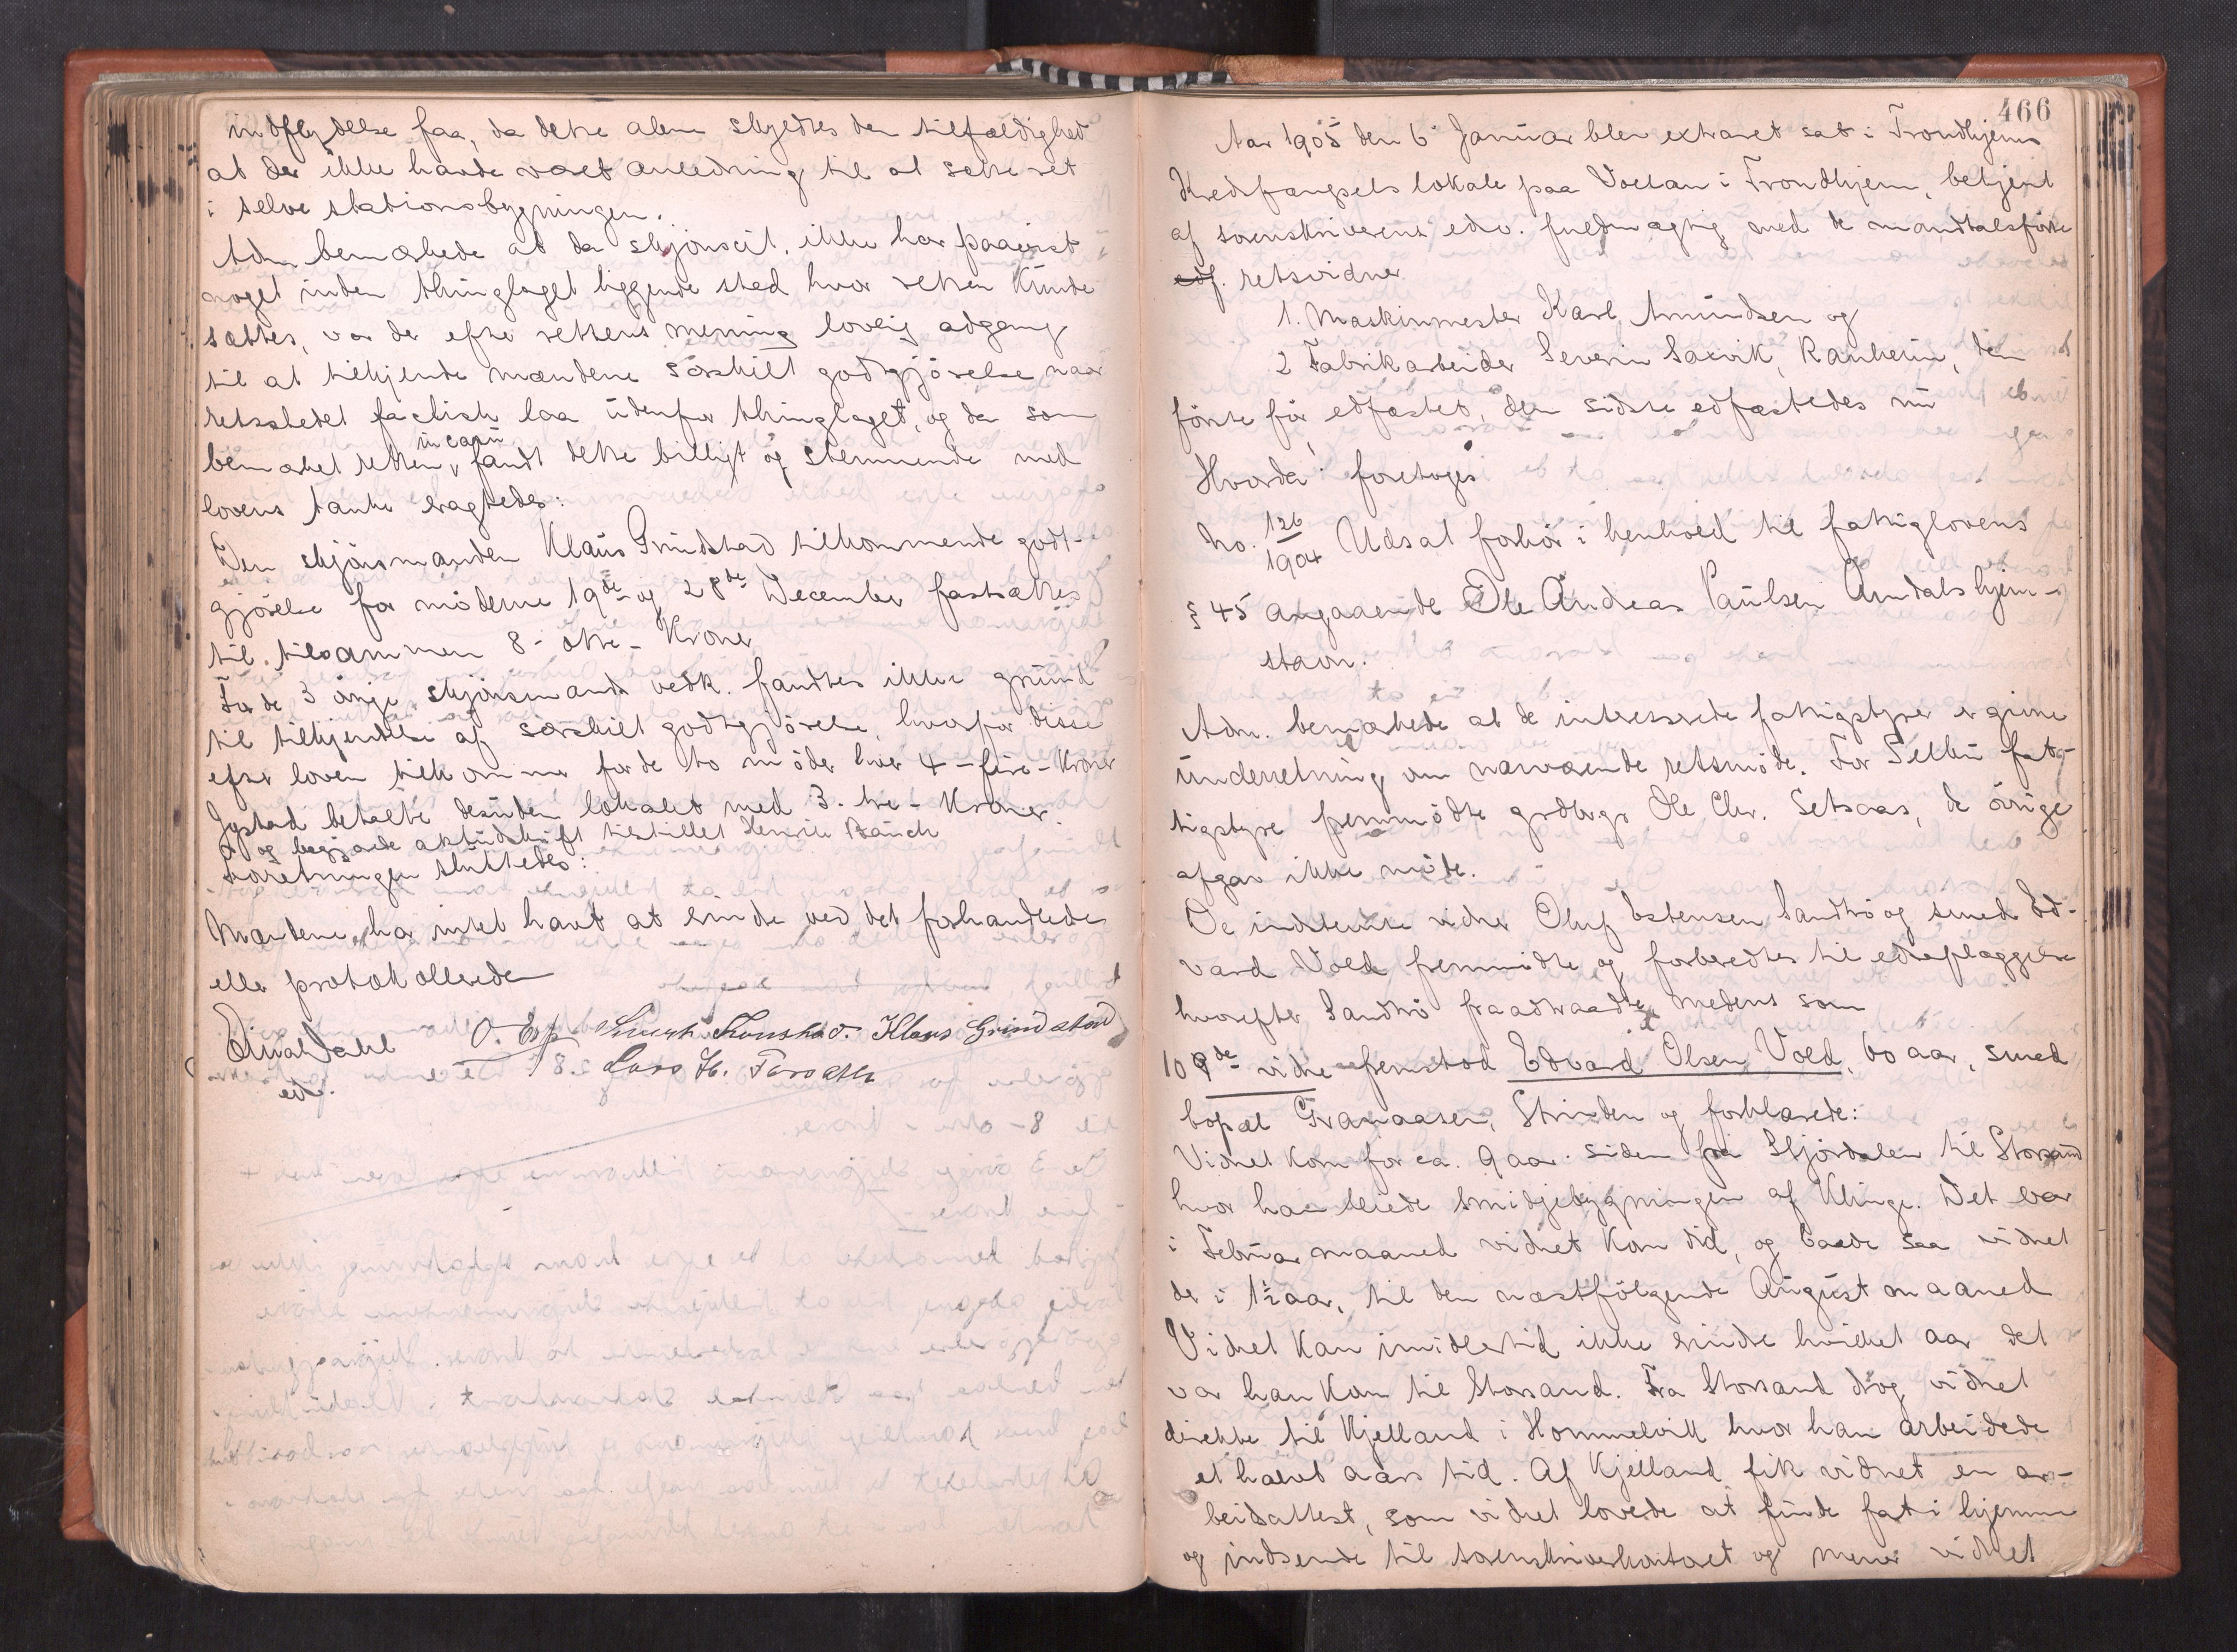 indflydelse faa, da dette alene skyldtes den tilfældighed
at der ikke havde været anledning til at sætte ret
i selve stationsbygningen.
Adm. bemærkede at da skjønscit. ikke har paavist
noget inden thinglaget liggende sted hvor retten kunde
sættes, var der efter rettens mening lovlig adgang
til at tilkjende mændene særskilt godtgjörelse naar
retsstedet factisk laa udenfor thinglaget, og da som
bemærket retten in casu fandt dette billigt og stemmende med
lovens tanke eragtedes:
Den skjönsmanden Klaus Grindstad tilkommende godt-
gjörelse for möderne 19de og 28de December fastsættes
til tilsammen 8 - otte - Kroner
For de 3 övrige skjönsmænds vedk. fandtes ikke grund
til tilkjendelse af særskilt godtgjörelse, hvorfor disse
efter loven tilkommer for de to möder hver 4 - fire - Kroner
Jystad betalte desuden lokalet med 3 - tre - Kroner.
og begjærede aktudskrift tilstillet Henrik Bauck
Forretningen sluttedes:
Mændene har intet havt at erindre ved det forhandlede
eller protokollerede
Einar Dahl O. Esp Klaus Grindstad
edv. Lars H.
466
Aar 1905 den 6 Januar blev extraret sat i Trondhjems
Kredsfængsels lokale paa Vollan i Trondhjem, betjent
af sorenskriverens edsv. fuldmægtig med de mandtalsförte
edf. retsvidner
1. Maskinmester Karl Amundsen og
2 Fabrikarbeider Severin Saxvik, Ranheim, den
förste för edfæstet, den sidste edfæstedes nu
Hvorda foretoges
No. 126/1904 Udsat forhör i henhold til fattiglovens
§ 45 angaaende Ole Andreas Paulsen Arndals hjem-
stavn.
Adm. bemærkede at de interesserede fattigstyrer er givne
underretning om nærværende retsmöde. For Selbu fat-
tigstyre fremmödte grdbrgr Ole Chr. Setsaas, de övrige
afgav ikke möde.
De indstevnte vidner Oluf Estensen Sandrö og smed Ed-
vard Vold fremmödte og forberedtes til edsaflæggelse
hvorefter Sandrö fraadtraadte medens som
109de vidne fremstod Edvard Olsen Vold, 60 aar, smed
bopæl Granaasen, Strinden og forklarede:
Vidnet kom for ca. 9 aar siden fra Stjördalen til Storsand
hvor han leiede smidjebygningen af Klinge. Det var
i Februar maaned vidnet kom did, og boede saa vidnet
der i 1½ aar, til den næstfölgende August maaned
Vidnet kan imidlertid ikke erindre hvilket aar det
var han kom til Storsand. Fra Storsand drog vidnet
direkte til Kjelland i Hommelvik hvor han arbeidede
et halvt aars tid. Af Kjelland fik vidnet en ar-
beidsattest, som vidnet lovede at finde fat i hjemme
og indsende til sorenskriverkontoret og mener vidnet